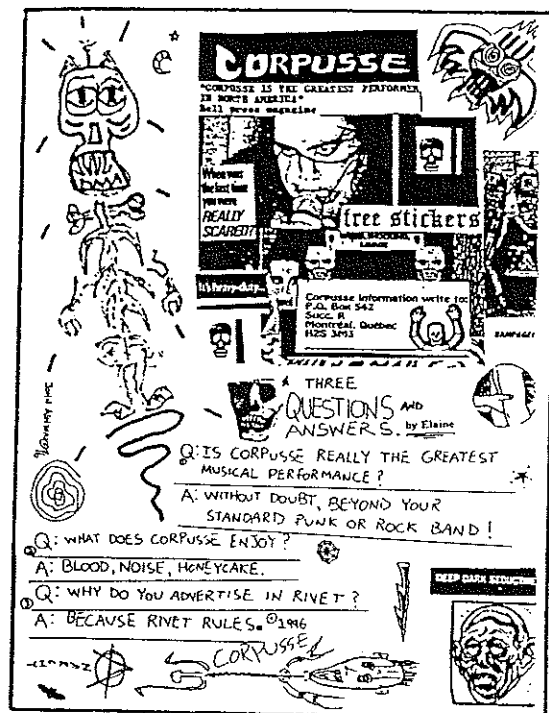 CORPUSSE
"CORPUSSE IS THE GREATEST PERFORMER
IN NORTH AMERICA"
Hell press magazine
When was
the last time
you were
REALLY
SCARED?
free stickers
It's heavy-duty...
Corpusse Information write to:
P.O. Box 542
Succ. R
Montréal, Québec
H2S 3M3
RAMPAGE!
THREE
QUESTIONS AND
ANSWERS. by Elaine
Q: IS CORPUSSE REALLY THE GREATEST
MUSICAL PERFORMANCE?
A: WITHOUT DOUBT, BEYOND YOUR
STANDARD PUNK OR ROCK BAND!
② Q: WHAT DOES CORPUSSE ENJOY?
A: BLOOD, NOISE, HONEYCAKE.
③ Q: WHY DO YOU ADVERTISE IN RIVET?
A: BECAUSE RIVET RULES. © 1996
DEEP DARK SEDUCTION
CORPUSSE